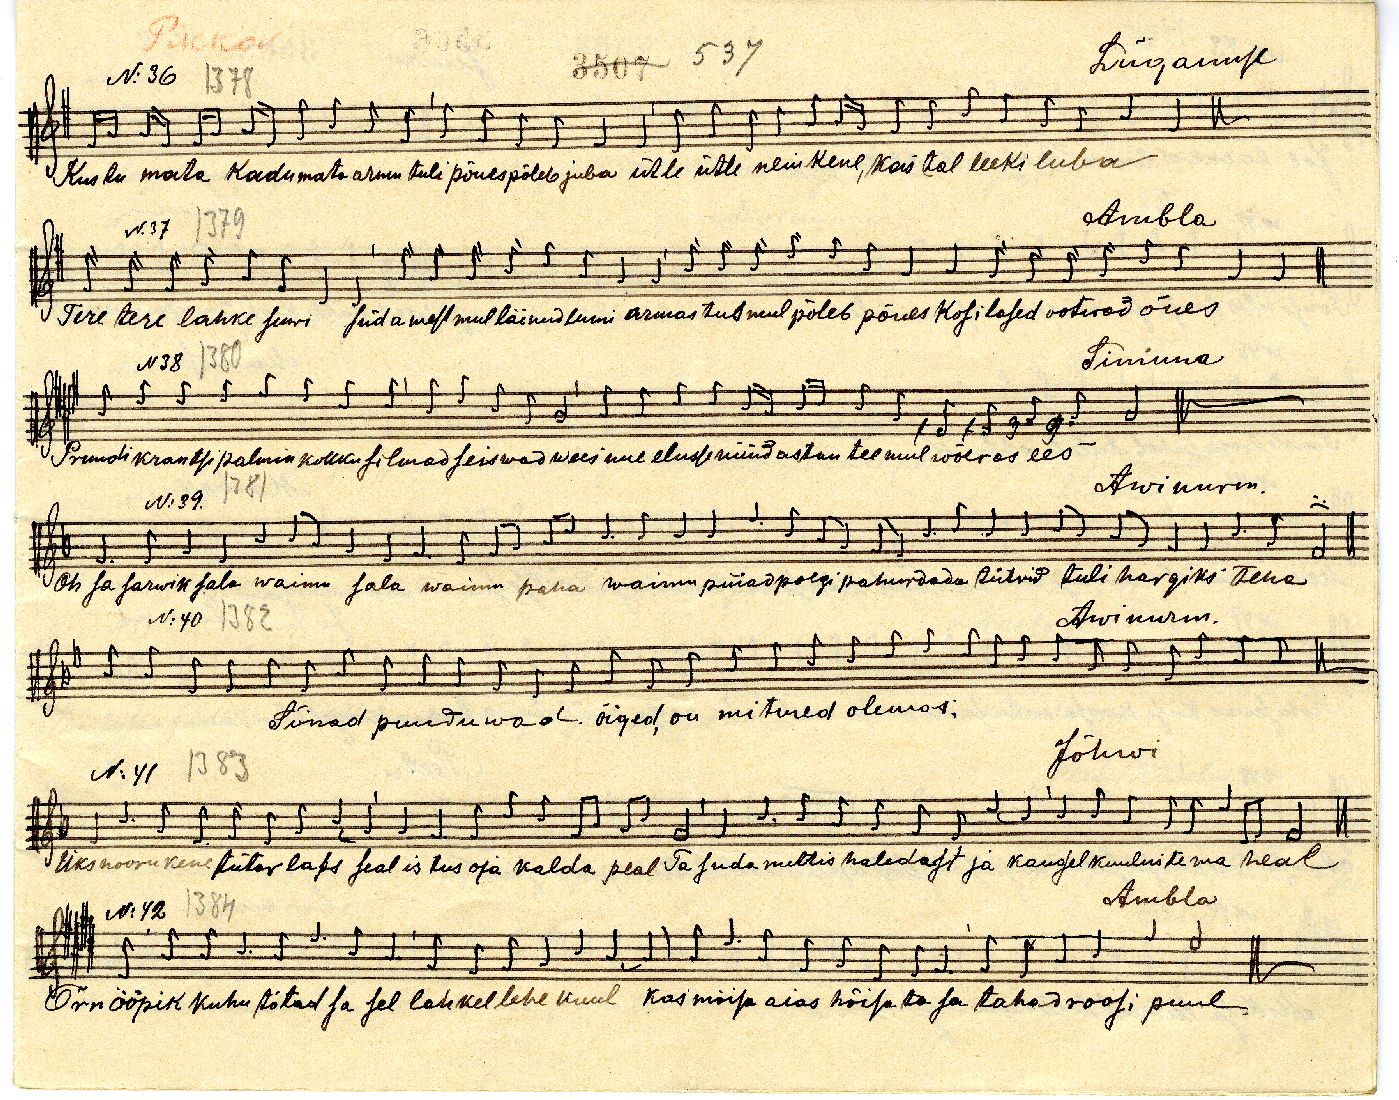 3507 537
Lüganuse
N: 36 1378
Kustu mata Kadumata armu tuli põues põleb juba ütle ütle neiu kene, kas tal leeki luba
N. 37 1379
Ambla
Tere tere lahke suwi südamest mul läinud lumi armastus mul põleb põues Kosilased ootwad õues
N 38 1380
Simuna
Prundi krantsi palmin kokku silmad seiswad wees nue elusse nüüd astun tee mul wõeras ees
N: 39. 1381
Awinurm.
Oh sa sarwik sala waimu sala waimu paha waimu püiad poegi pahurdada tütrid tuli hargiks teha
N: 40 1382
Awinurm.
Sõnad puuduwad. õiged, on mitmed olemas;
N: 41 1383
Jõhwi
Üks noorukene tütar laps seal istus oja kalda peal Ta suda mettis haledast ja kaugel kuulus tema heal
N: 42 1384
Ambla
Õrn ööpik kuhu tõtad sa sel lahkel lehe kuul kas mõisa aias hõisata sa tahad roosi puul